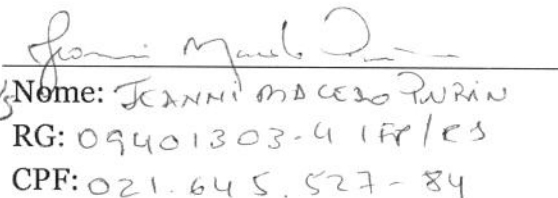 Nome: JEANNI MACEDO PURIN
RG: 09401303-4 IFP/RJ
CPF: 021.645.527-84